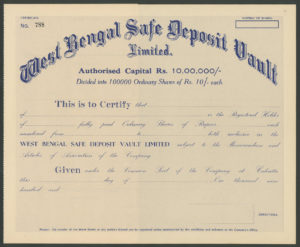 CERTIFICATE
NUMBER OF SHARES
No. 788
West Bengal Safe Deposit Vault
Limited.
Authorised Capital Rs. 10,00,000/-
Divided into 100000 Ordinary Shares of Rs. 10/- each
This is to Certify that
of is the Registered Holder
of fully paid Ordinary Shares of Rupees each
numbered from to both inclusive in the
WEST BENGAL SAFE DEPOSIT VAULT LIMITED subject to the Memorandum and
Articles of Association of the Company.
Given under the Common Seal of the Company at Calcutta
this day of One thousand nine
hundred and
DIRECTORS